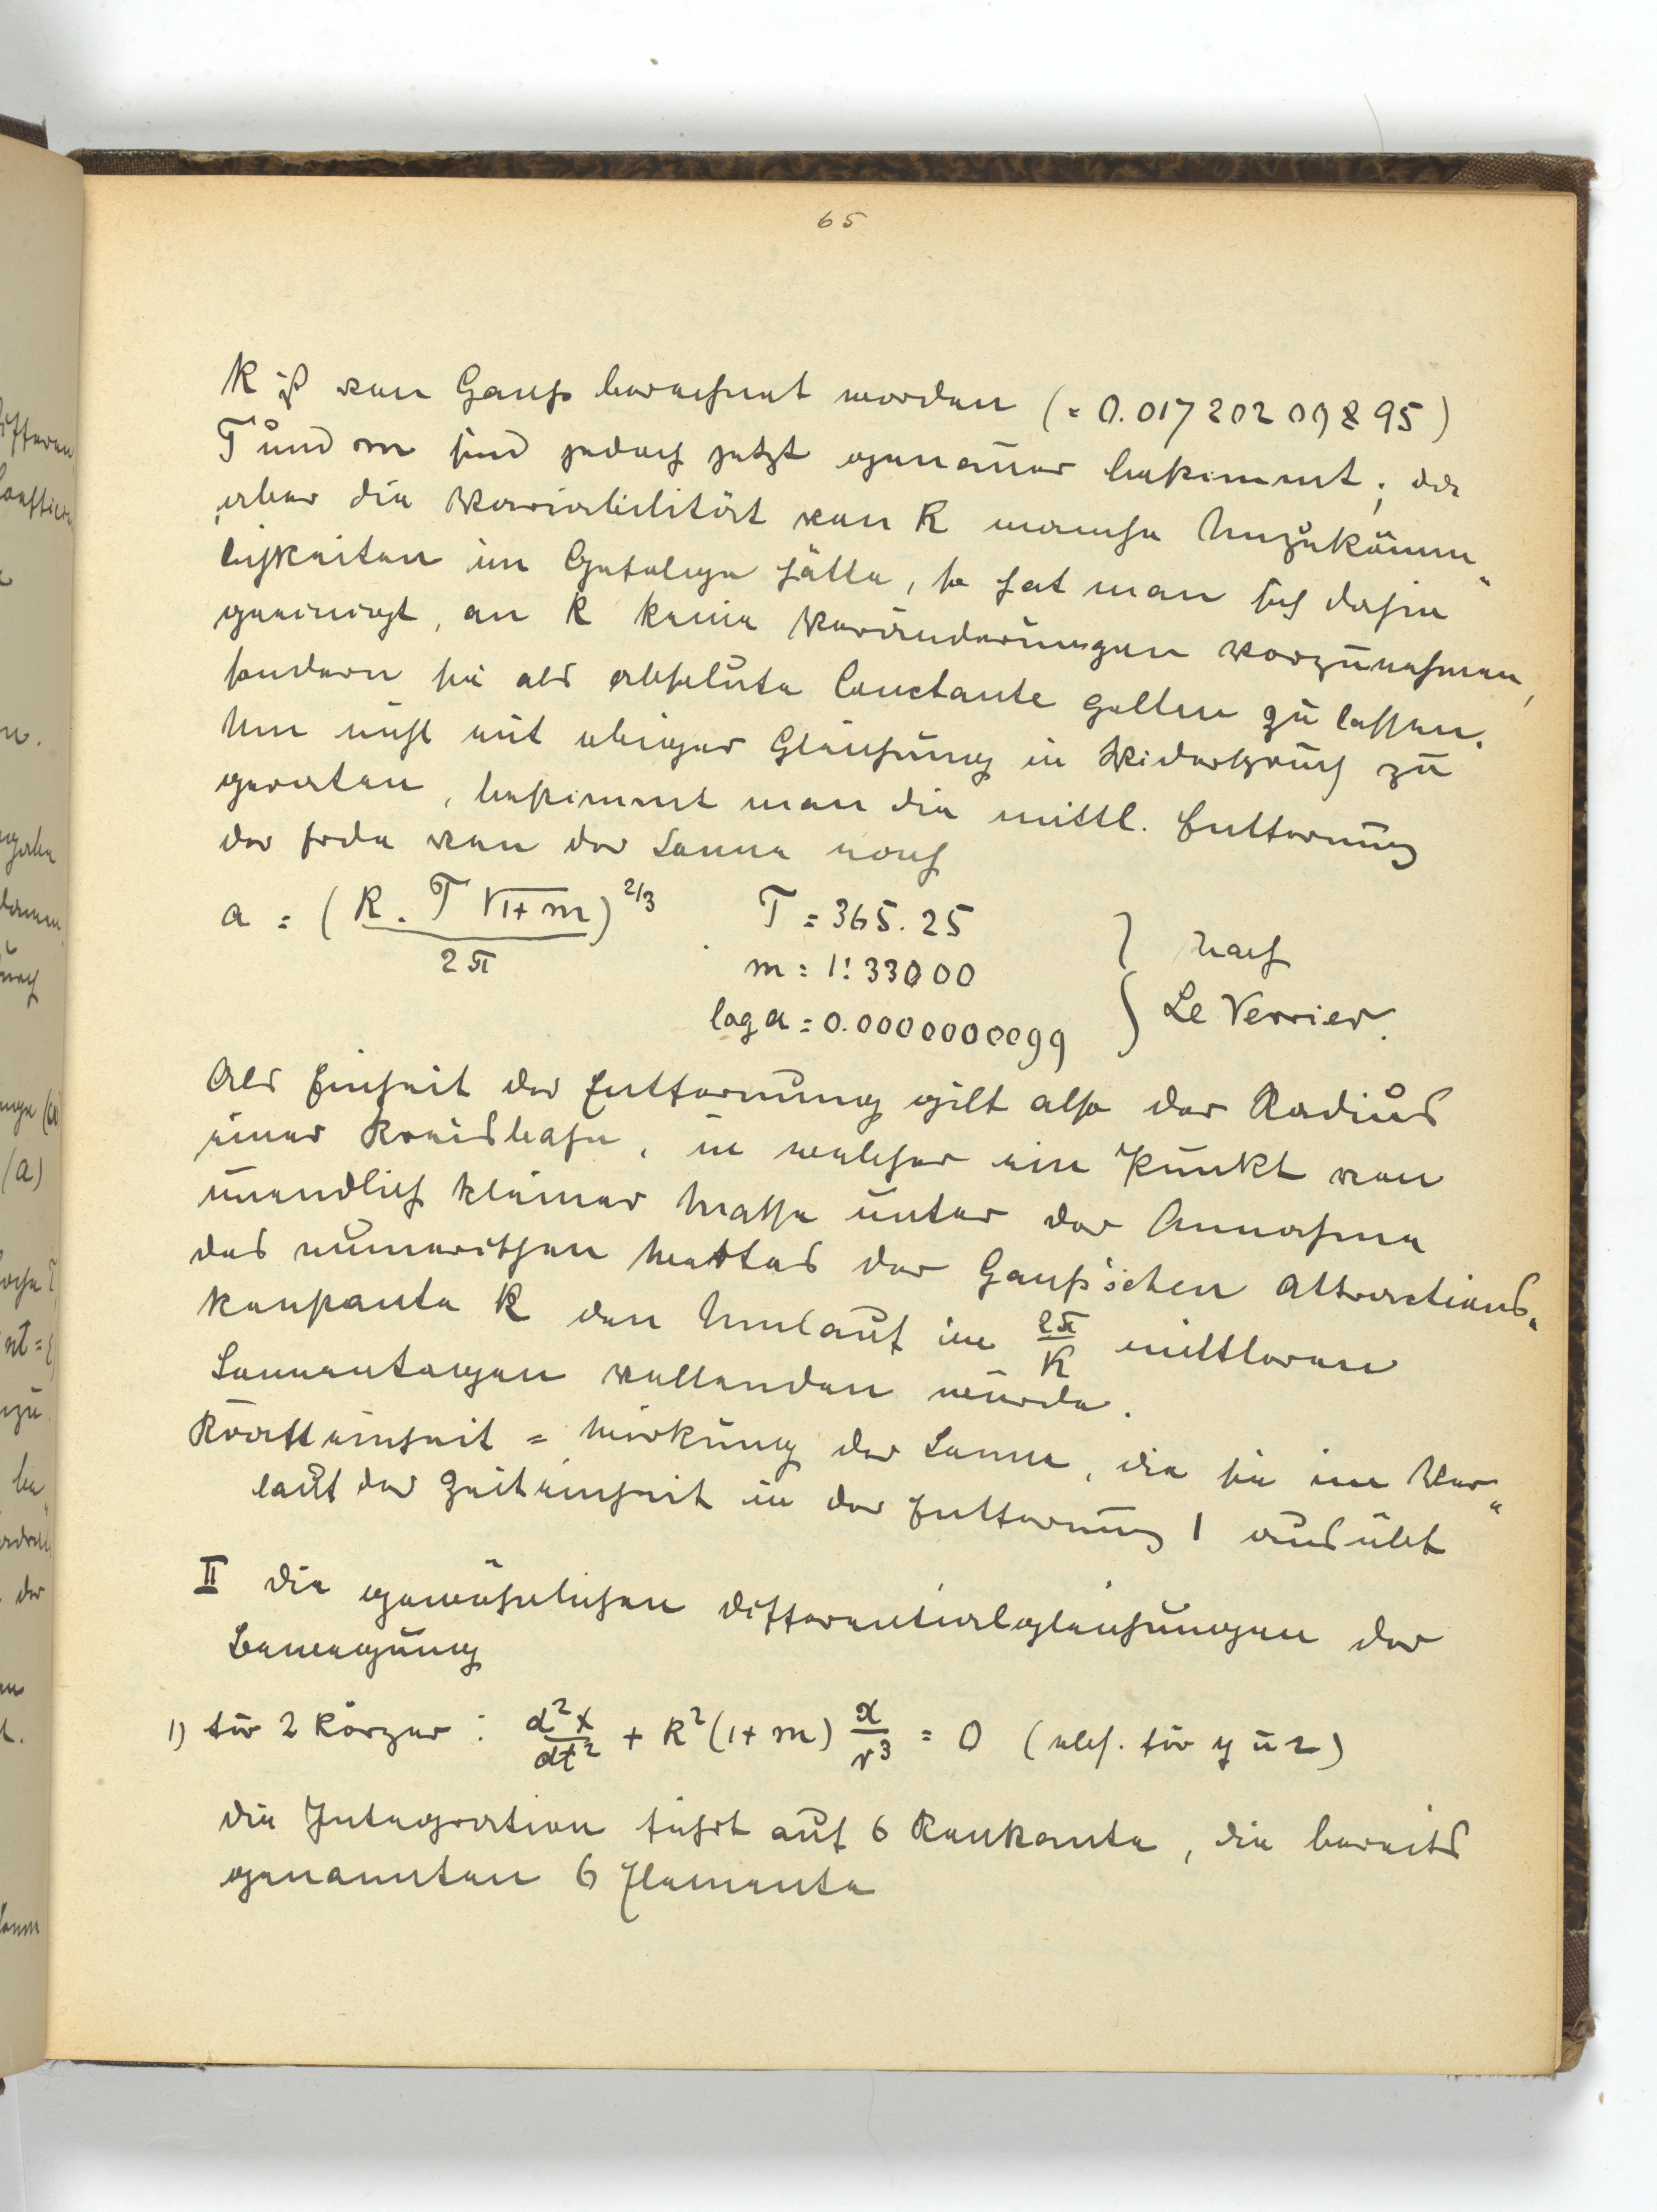 65
K ist von Gauß berechnet worden (= 0.01720209895)
T und m sind jedoch jetzt genauer bestimmt; da
aber die Variabilität von K manche Unzukömm„
lichkeiten im Gefolge hätte, so hat man sich dahin
geeinigt, an K keine Veränderungen vorzunehmen,
sondern sie als absolute Constante gelten zu lassen.
Um nicht mit obiger Gleichung in Widerspruch zu
geraten, bestimmt man die mittl. Entfernung
der Erde von der Sonne nach
a = (K . T √1+m / 2π)^2/3 . T = 365.25
m = 1:33000 } nach
log a = 0.0000000099 } Le Verrier.
Als Einheit der Entfernung gilt also der Radius
einer Kreisbahn, in welcher ein Punkt von
unendlich kleiner Masse unter der Annahme
des numerischen Wertes der Gauß'schen Attractions„
konstante K den Umlauf in 2π/K mittleren
Sonnentagen vollenden würde.
Krafteinheit = Wirkung der Sonne, die sie im Ver„
lauf der Zeiteinheit in der Entfernung 1 ausübt
II Die gewöhnlichen Differentialgleichungen der
Bewegung
1) für 2 Körper : d²x/dt² + K²(1+m) x/r³ = 0 ( . für y u z)
Die Integration führt auf 6 Konstante, die bereits
genannten 6 Elemente